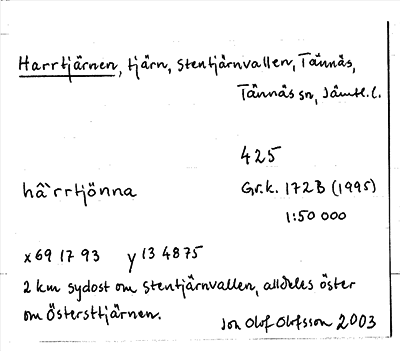 Harrtjärnen, tjärn, Stentjärnvallen, Tännäs,
Tännäs sn, Jämtl. l.
425
hâ`rrtjönna
Gr.k. 172B (1995)
1:50 000
x 69 17 93 y 13 48 75
2 km sydost om Stentjärnvallen, alldeles öster
om Östersttjärnen.
Jon Olof Olofsson 2003